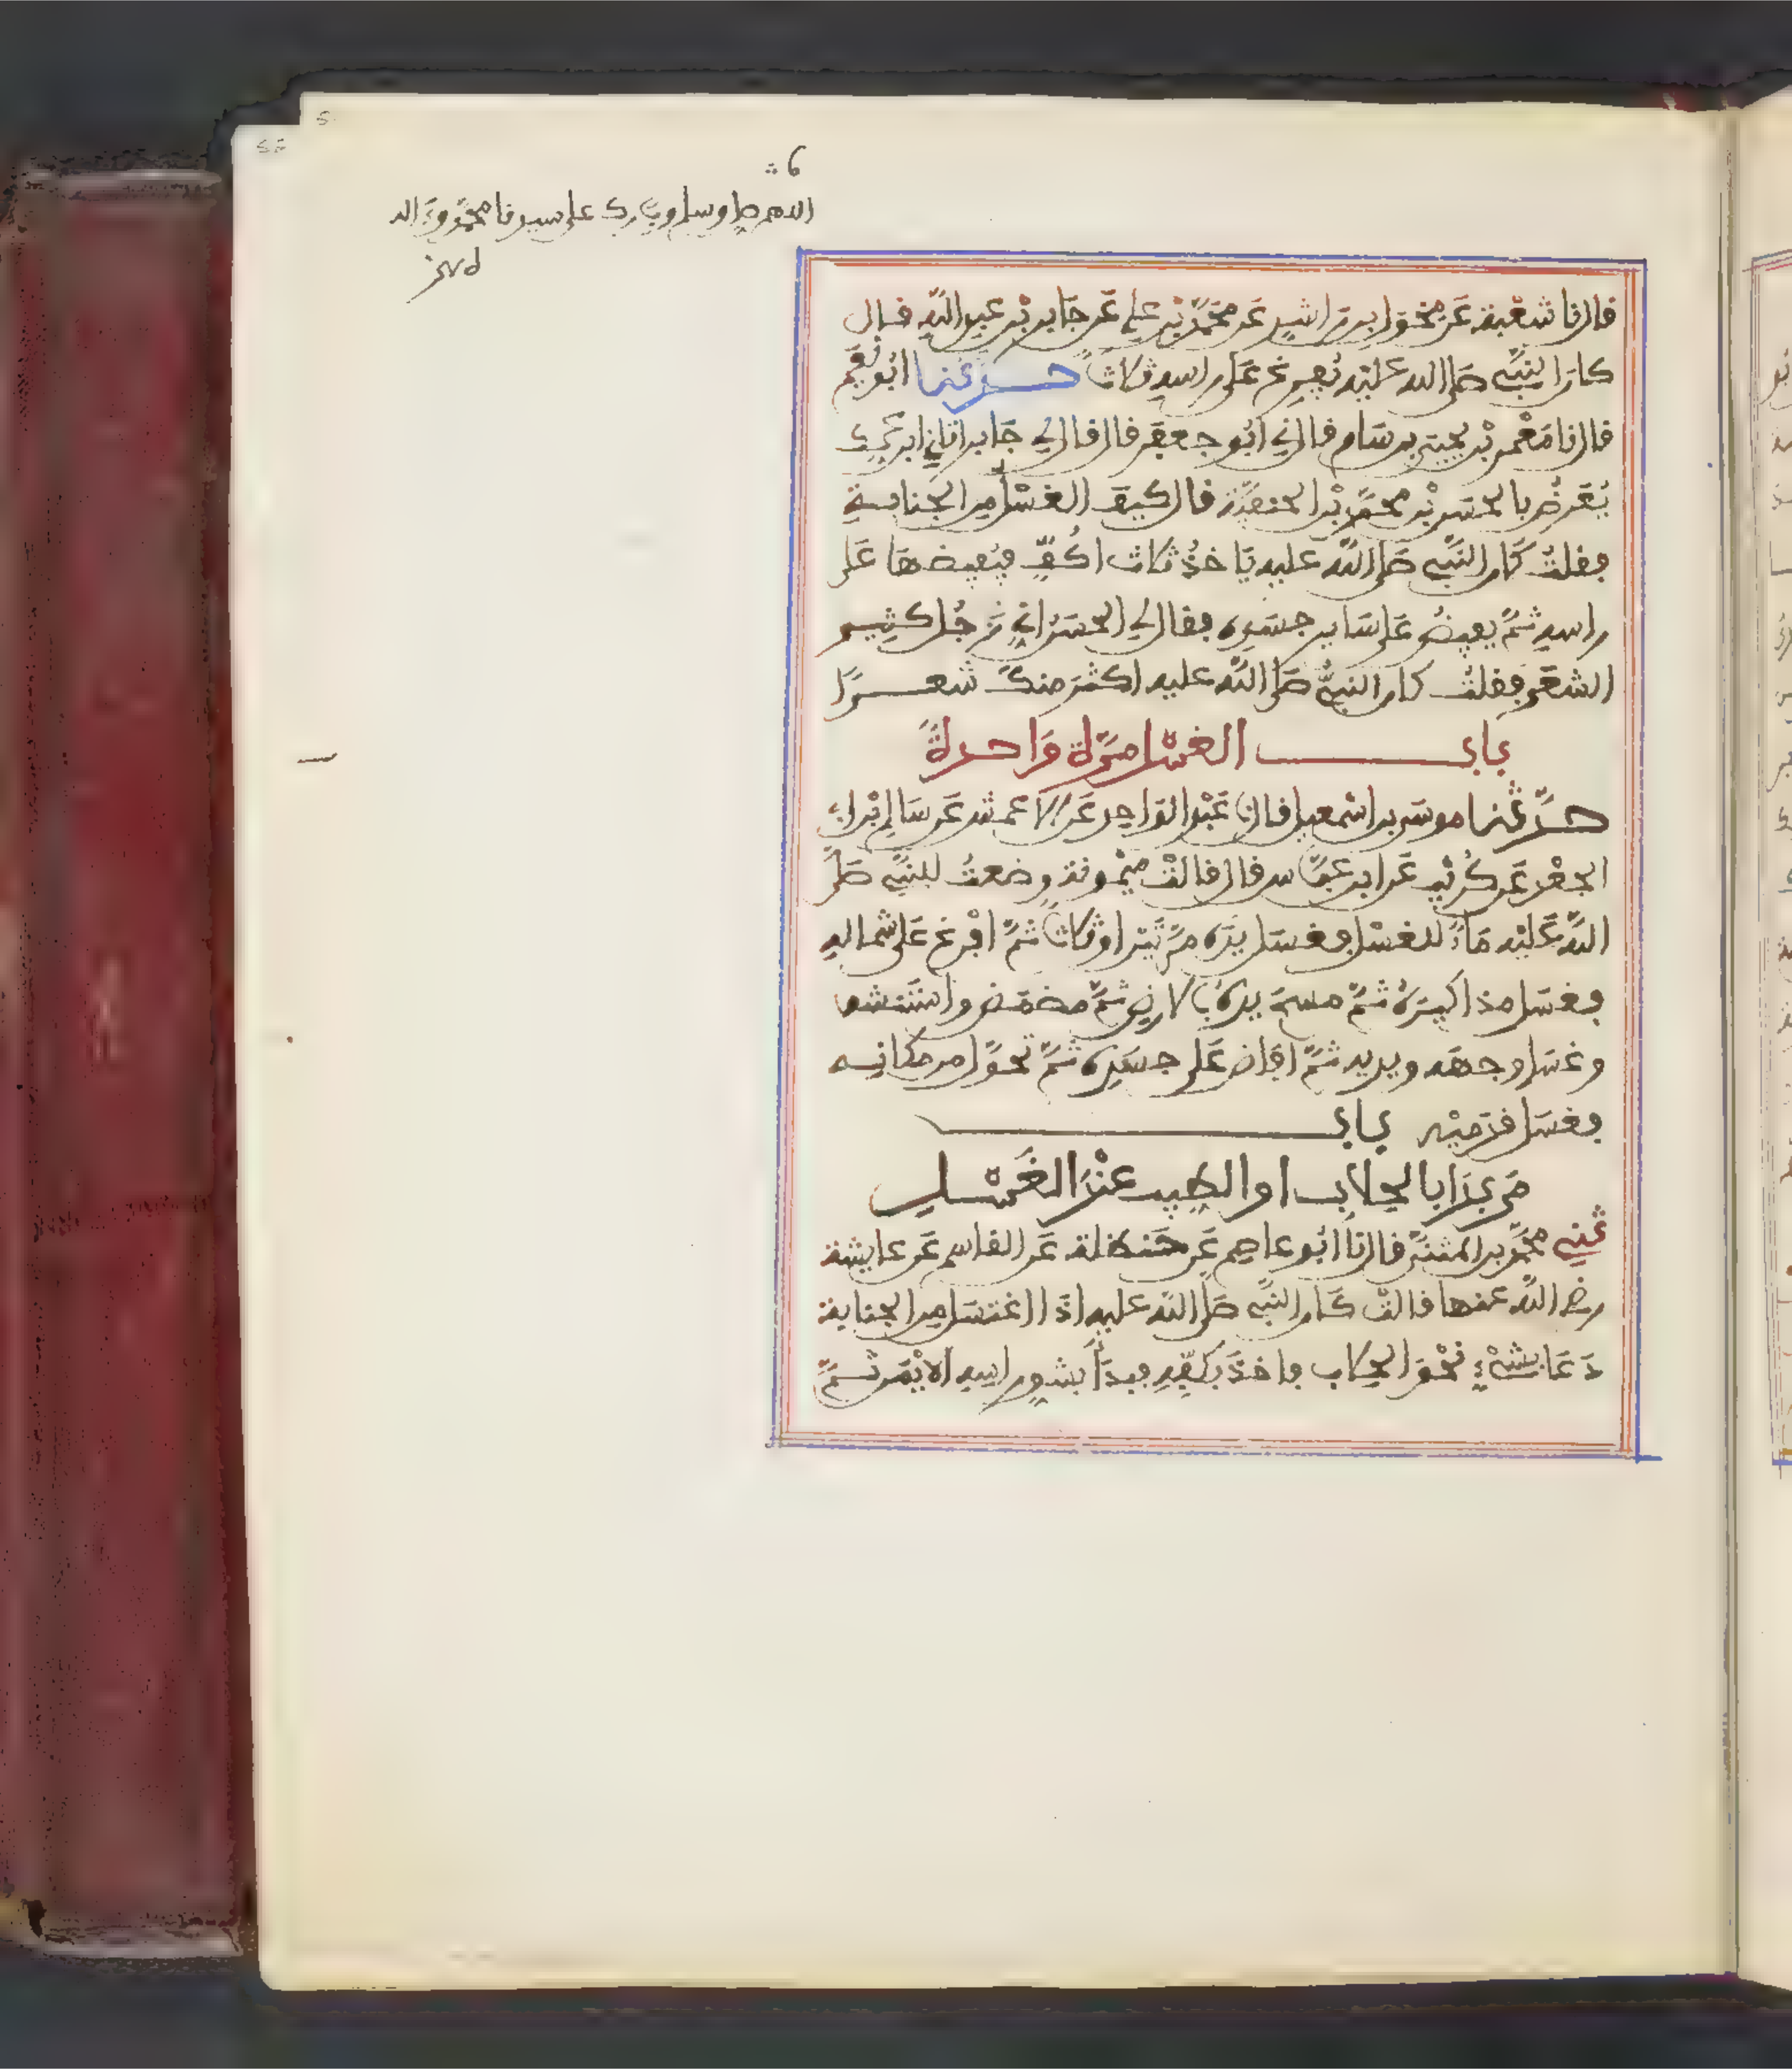 اللهم صل وسلم وبارك على سيدنا محمد وءاله
قال نا شعبة عَن مخول بن راشد عَن محمّد بْن علي عَن جَابر بْن عبد اللّه قال
كان النبيّ صلى الله عليْه يُفرغ عَلى راسه ثلاثًا حدثنا ابُو نُعَيم
قال نا مَعْمر بْن يحيى بن سَام قال ني ابُو جعفر قال قال لي جَابر اتاني ابن عمّك
يُعَرّضُ بالحسَن بْن محمّد بْن الحنفيّة قال كيفَ الغسْل من الجَنابة
فقلتُ كَان النبيّ صَلى اللّه عليه يَاخذُ ثلاث اكُفٍّ فيُفيضها عَلى
راسه ثمّ يفيضُ عَلى سَاير جسَده فقال لي الحسَنُ اني رَجُل كثير
الشعَر فقلتُ كان النبيُّ صَلى اللّه عليه اكثرَ منكَ شعرًا
باب الغسْل مَرّة وَاحدةً
حدّثنا موسَى بن اسْمعيل قال نا عَبْد الوَاحد عَن الاعمش عَن سَالم بْن ابي
الجعْد عَن كُرَيْب عَن ابن عبّاس قال قالتْ ميْمونة وضعتُ للنبيّ صَلى
اللّه عَليْه مَاءً للغسْل فغسَل يدَه مرّتيْن او ثلاثًا ثمّ افْرغ عَلى شماله
فغسَل مذاكيرَهُ ثمّ مسحَ يدهُ بالارض ثمّ مضمَض واستنشق
وغسَل وجههَ ويديه ثمّ افاض عَلى جسَده ثمّ تحوّل من مكانه
فغسَل قدَميْه باب
مَن بَدَا بالحِلاب او الطيب عنْدَ الغَسْل
ثني محمّد بن المثنىّ قال نا ابُو عاصم عَن حَنظلة عَن القاسم عَن عايشة
رضي اللّه عنها قالتْ كَان النبيّ صَلى اللّه عليه اذا اغتسَل من الجنابة
دَعَا بشيْءٍ نحْوَ الحِلاب فاخذَ بكفّه فبدَأ بشق راسه الايْمَن ثمّ